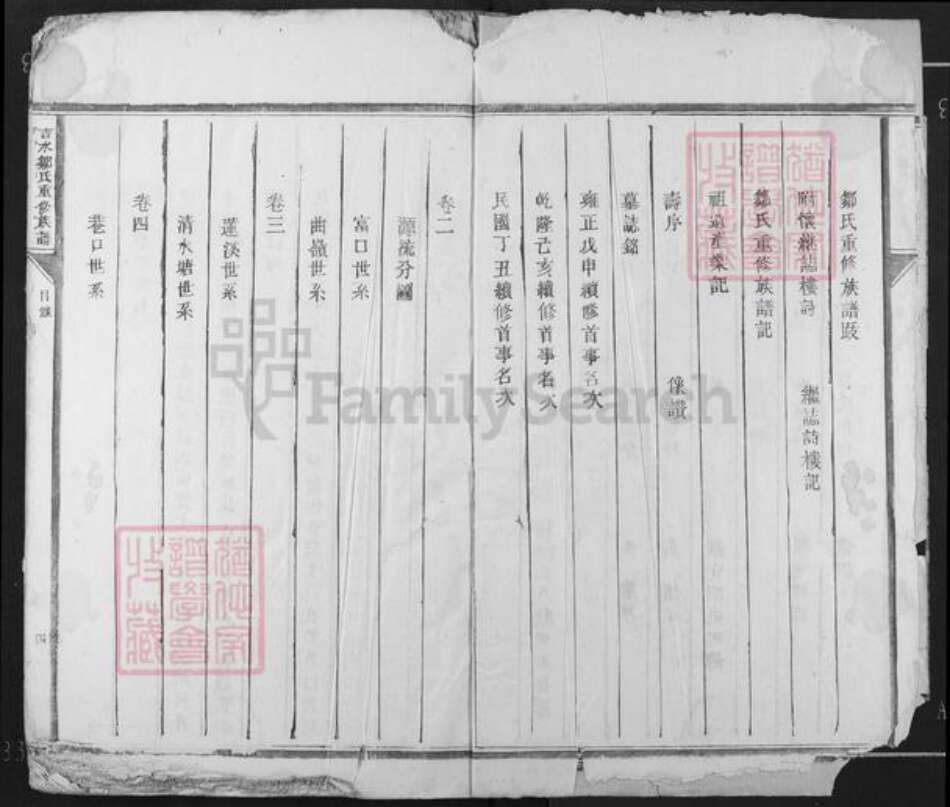 鄒氏重修族譜跋
附懷繼誌樓詩 繼誌詩樓記
鄒氏重修族譜記
祖遺產業記
壽序 像讚
墓誌銘
雍正戊申續修首事名次
乾隆己亥續修首事名次
民國丁丑續修首事名次
卷二
源流分圖
富口世系
曲嶺世系
卷三
蓮淡世系
清水塘世系
卷四
巷口世系
吉水鄒氏重修族譜
目錄
FamilySearch
譜學會
收藏